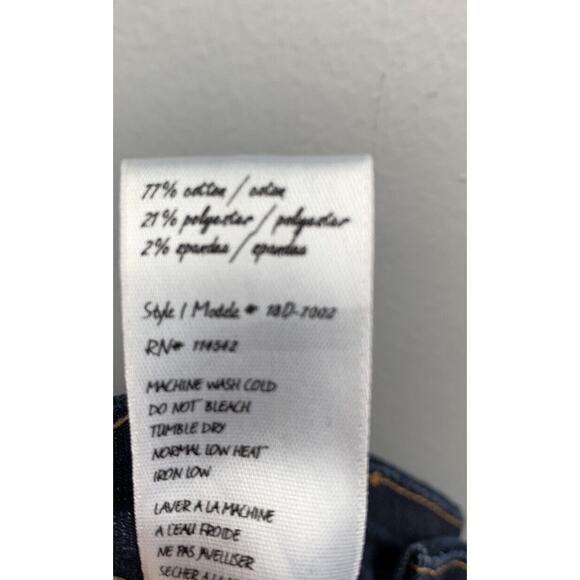 77% cotton / coton
21% polyester / polyester
2% spandex / spandex
Style / Modele # 18D-7002
RN# 114542
MACHINE WASH COLD
DO NOT BLEACH
TUMBLE DRY
NORMAL LOW HEAT
IRON LOW
LAVER A LA MACHINE
A L'EAU FROIDE
NE PAS AVELLISER
SECHER A LA